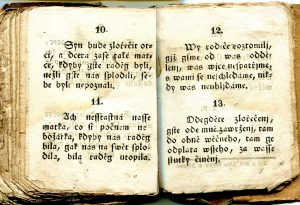 10.
Syn bude zločečit ot-
ci, a dcera zase také mat-
ce, kdyby gste raděg byli,
nežli gste nás splodili, se-
be byli nepoznali.
11.
Ach nessťastná nasse
matka, co si počnem ne-
božátka, kdyby nás raděg
byla, gak nás na swět splo-
dila, bila raděg utopila.
12.
Wy rodiče roztomilj,
gjž gsme od was oddě-
lenj, was wjce nespatřjme,
s wami se neshledáme, nik-
dy was neuhljdáme.
13.
Odegděte zločečenj,
gste ode mně zawrženj, tam
do ohně wěčného, tam ge
odplata wsseho, za wasse
skutky činěnj.